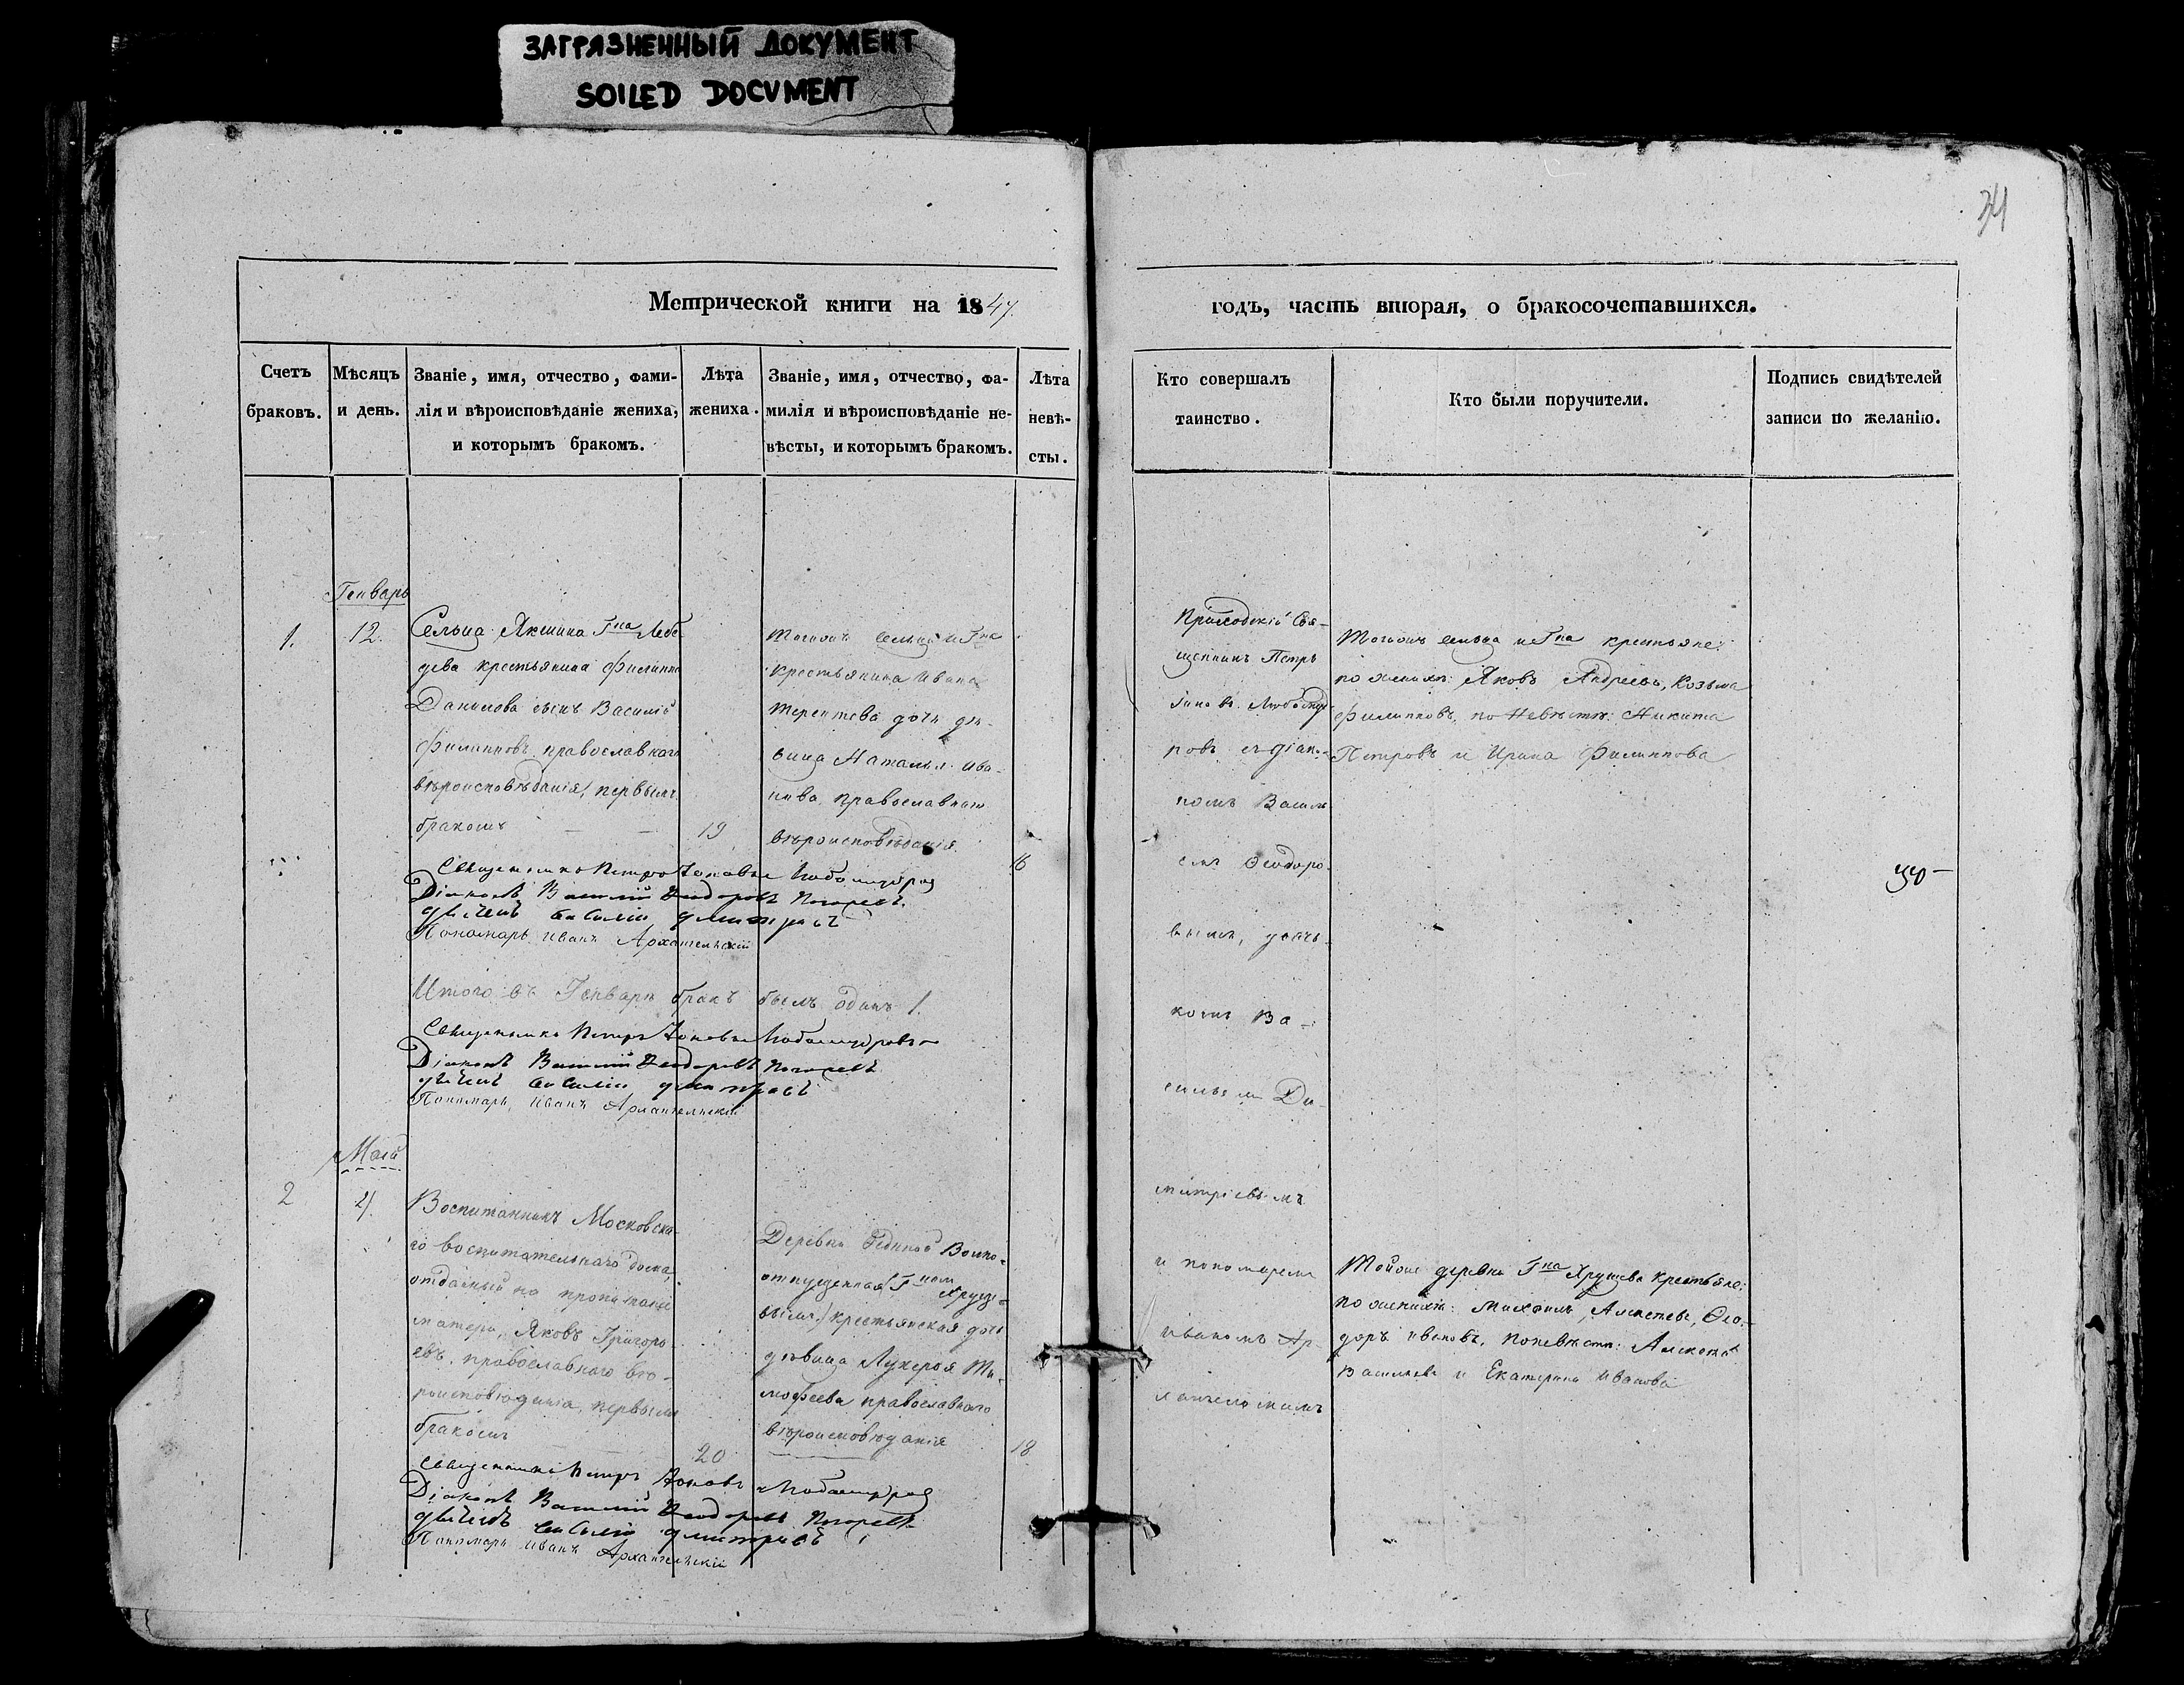 ЗАГРЯЗНЕННЫЙ ДОКУМЕНТ
SOILED DOCUMENT
34
Метрической книги на 1847.
годъ, часть вторая, о бракосочетавшихся.
Счетъ
браковъ.
Мѣсяцъ
и день.
Званіе, имя, отчество, фами-
лія и вѣроисповѣданіе жениха,
и которымъ бракомъ.
Лѣта
жениха.
Званіе, имя, отчество, фа-
милія и вѣроисповѣданіе не-
вѣсты, и которымъ бракомъ.
Лѣта
невѣ-
сты.
Кто совершалъ
таинство.
Кто были поручители.
Подпись свидѣтелей
записи по желанію.
Генварь
1.
12.
Сельца Якшина Гна
крестьянина Филиппа
Данилова сынъ Василій
Филипповъ православнаго
вѣроисповѣданія, первымъ
бракомъ
19
сельца и Гна
крестьянина Ивана
Терентева дочь дѣ-
вица Наталья Ива-
нова православнаго
вѣроисповѣданія.
16
Приходскій Свя-
щенникъ Петръ
ровъ съ діако-
номъ Василь
емъ Ѳеодоро-
вымъ, дьяч-
комъ Ва-
сильемъ Ди-
митріевымъ
и пономаремъ
Иваномъ Ар-
сельца и Гна крестьяне:
по женихѣ: Яковъ Андреевъ, Козьма
Филипповъ, по невѣстѣ: Никита
Петровъ и Ирина Филиппова
Священникъ Петръ
Діаконъ Василій Ѳеодоровъ
Пономарь Иванъ Архангельскій
Итого въ Генварѣ бракъ былъ одинъ 1.
Священникъ Петръ
Діаконъ Василій Ѳеодоровъ
Пономарь Иванъ Архангельскій
Май
2
4.
Воспитанникъ Московска-
го воспитательнаго дома,
отданный на пропитаніе
матери, Яковъ Григорь-
евъ, православнаго вѣ-
роисповѣданія, первымъ
бракомъ
20
Деревни Вольно-
отпущенная Гномъ Хруще-
вымъ крестьянская дочь
дѣвица Лукерья Ти-
мофеева православнаго
вѣроисповѣданія
18
деревни Гна Хрущева крестьяне:
по женихѣ: Михаилъ Алексѣевъ, Ѳео-
доръ Ивановъ, по невѣстѣ: Алексѣй
Васильевъ и Екатерина Иванова
Священникъ Петръ
Діаконъ Василій Ѳеодоровъ
Пономарь Иванъ Архангельскій